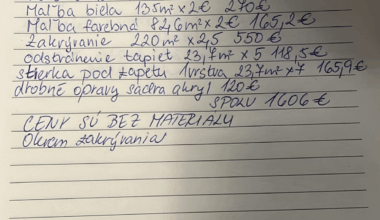 Maľba biela 135m² x 2€ 270€
Maľba farebná 82,6m² x 2€ 165,2€
Zakrývanie 220m² x 2,5 550€
odstránenie tapiet 23,7m² x 5 118,5€
stierka pod tapetu 1vrstva 23,7m² x 7 165,9€
drobné opravy sádra akryl 120€
SPOLU 1606€
CENY SÚ BEZ MATERIALU
Okrem zakrývania